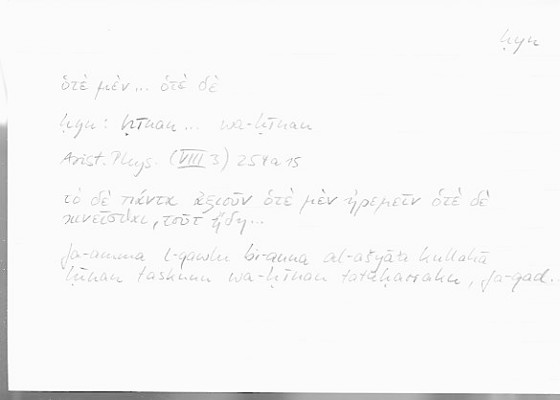 ḥyn
ὁτὲ μὲν... ὁτὲ δὲ
ḥyn: ḥīnan... wa-ḥīnan
Arist. Phys. (VIII 3) 254a15
τὸ δὲ πάντα ἀξιοῦν ὁτὲ μὲν ἠρεμεῖν ὁτὲ δὲ
κινεῖσθαι, τοῦτ' ἤδη...
fa-amma l-qawlu bi-anna al-ašyāʾa kullahā
ḥīnan taskunu wa-ḥīnan tataḥarraku, fa-qad...